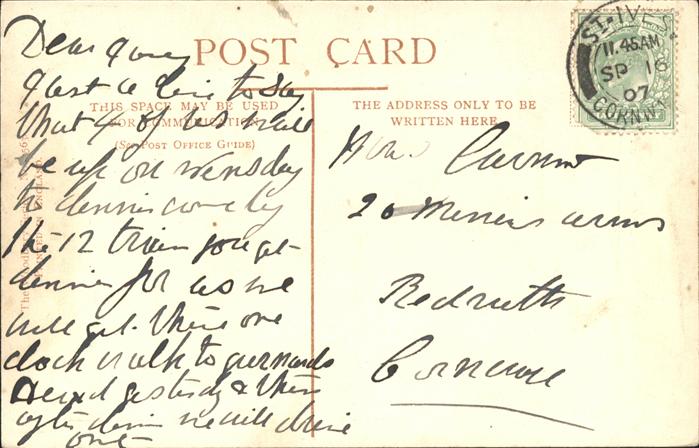 POST CARD
THIS SPACE MAY BE USED
FOR COMMUNICATION
(SEE POST OFFICE GUIDE)
THE ADDRESS ONLY TO BE
WRITTEN HERE
ST. IVES
11.45 AM
SP 16
07
CORNWALL
Dear
Just a line to say
that 4 of us will
be up on Wensday
to dinner come by
the 12 train you get
dinner for as we
will get there one
clock walk to gurnards
Head yestedy & then
after dinner we will drive
out
20
Redruth
Cornwall